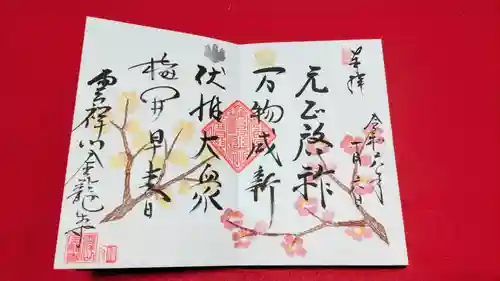 奉拝
令和六年
一月一日
元正啓祚
万物咸新
伏惟大衆
梅開早春
雲祥山金龍寺